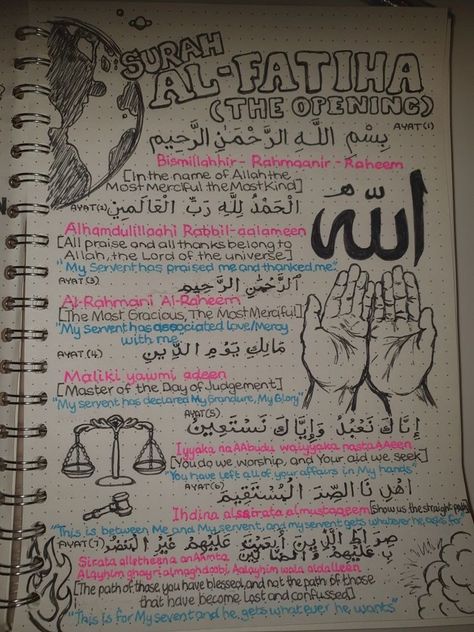 SURAH
AL-FATIHA
(THE OPENING)
AYAT(1)
بِسْمِ اللَّهِ الرَّحْمَٰنِ الرَّحِيمِ
Bismillahhir - Rahmaanir - Raheem
[In the name of Allah the
Most Merciful the Most Kind]
AYAT(2)
الْحَمْدُ لِلَّهِ رَبِّ الْعَالَمِينَ
الله
Alhamdulillaahi Rabbil-aalameen
[All praise and all thanks belong to
Allah, the Lord of the universe]
"My Servent has praised me and thanked me."
AYAT(3)
الرَّحْمَٰنِ الرَّحِيمِ
Al-Rahmani Al-Raheem
[The Most Gracious, The Most Merciful]
"My servent has associated love/Mercy
with me"
AYAT.(4)
مَالِكِ يَوْمِ الدِّينِ
Maliki yawmi adeen
[Master of the Day of Judgement]
"My servent has declared My Grandure, My Glory"
AYAT(5)
إِيَّاكَ نَعْبُدُ وَإِيَّاكَ نَسْتَعِينُ
Iyyaka naAAbudu waiyyaka nastaAAeen
[You do we worship, and Your aid we seek]
"You have left all of your affairs in My hands"
AYAT(6)
اهْدِنَا الصِّرَاطَ الْمُسْتَقِيمَ
Ihdina alssirata almustaqeem [Show us the straight path]
"This is between Me and My servent, and my servent gets whatever he asks for"
AYAT(7)
صِرَاطَ الَّذِينَ أَنْعَمْتَ عَلَيْهِمْ غَيْرِ الْمَغْضُوبِ
عَلَيْهِمْ وَلَا الضَّالِّينَ
Sirata alletheena anAAmta
AAlayhim ghayri almaghdoobi AAalayhim wala aldalleen
[The path of those you have blessed, and not the path of those
that have become lost and confused]
"This is for My servent and he gets whatever he wants"